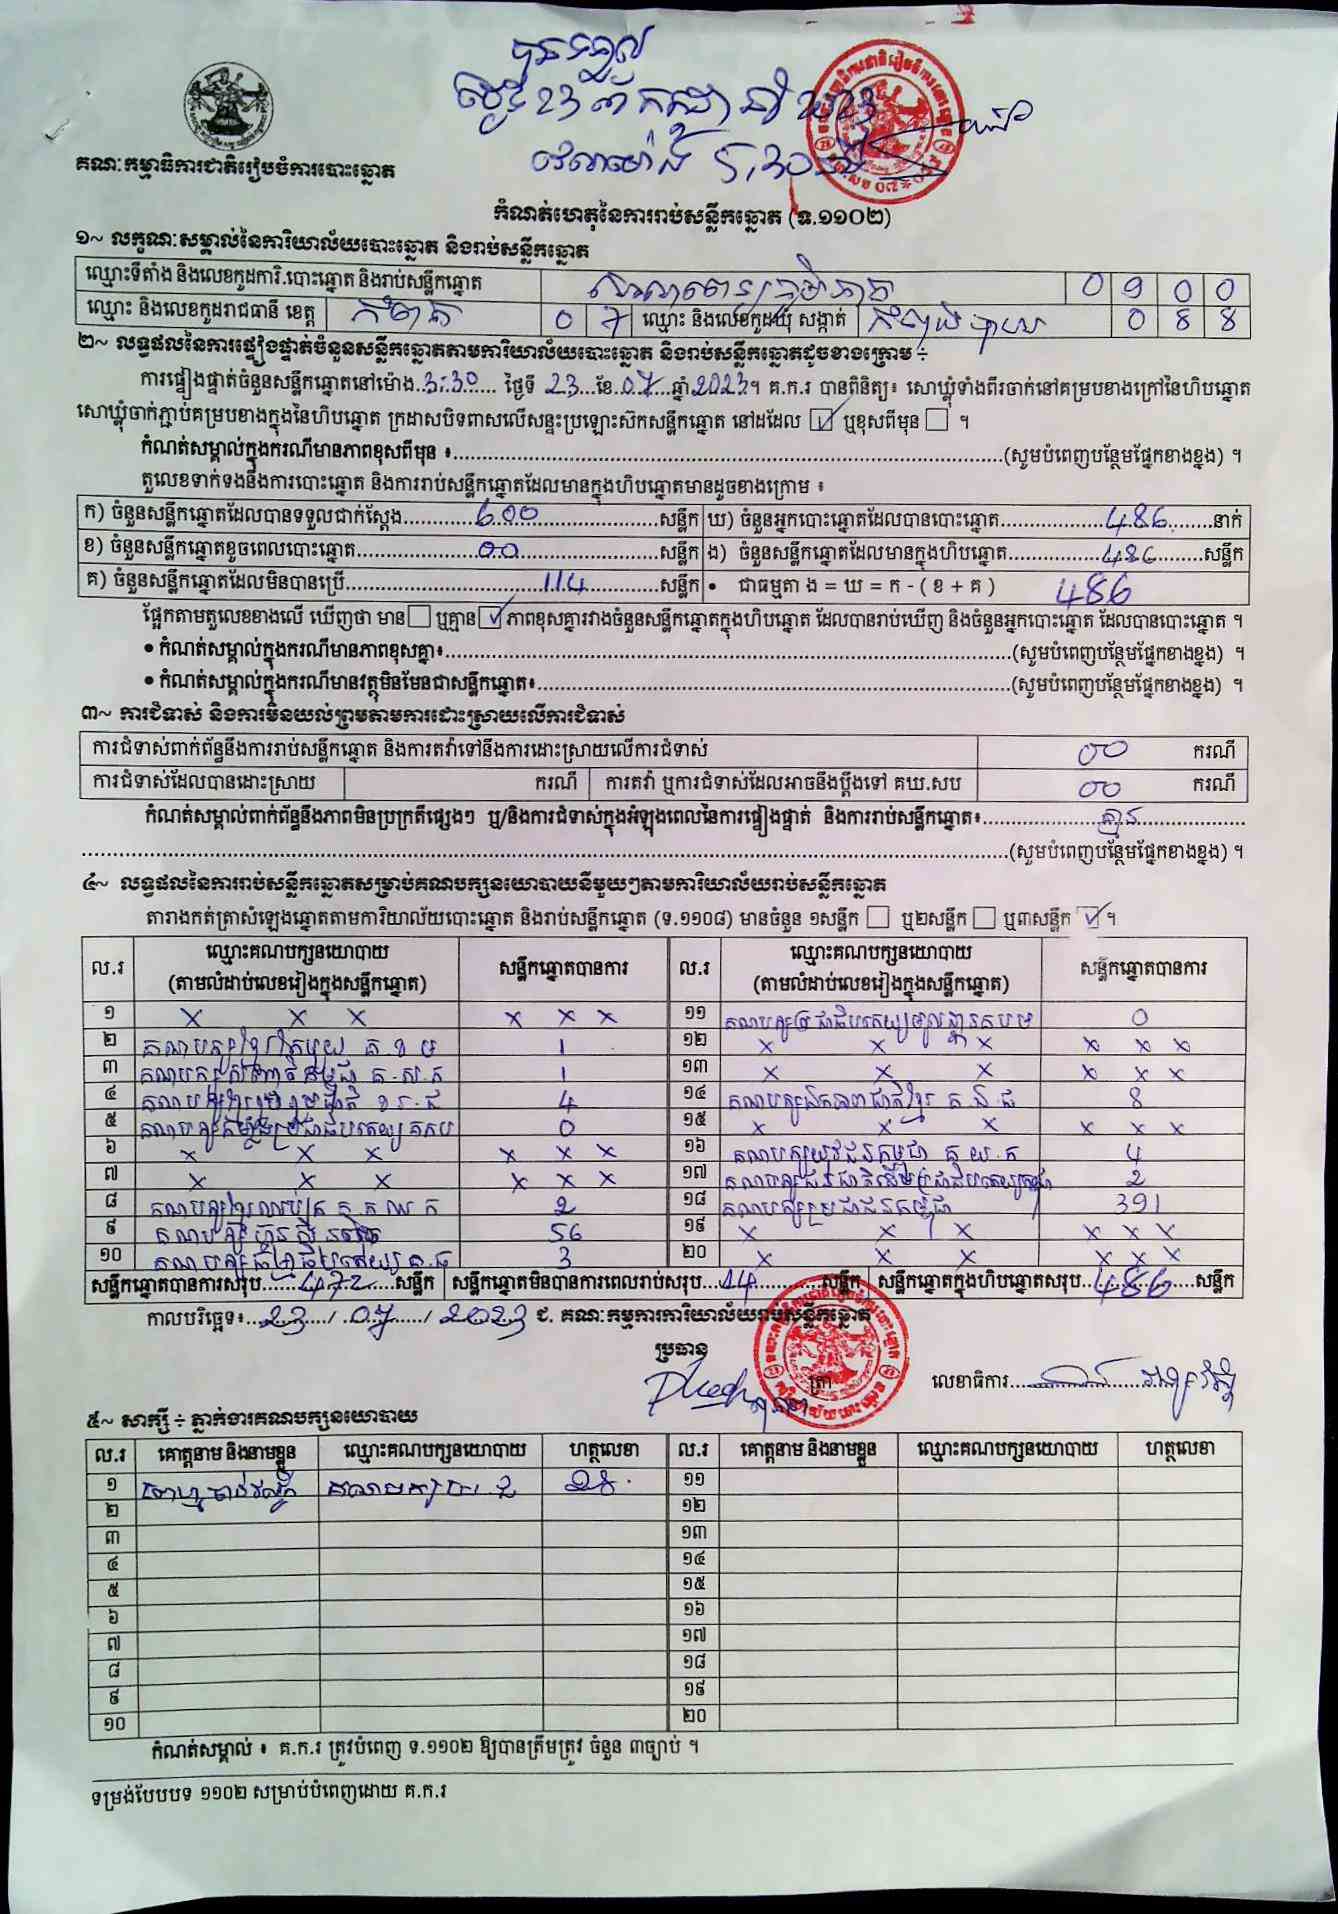 បានទទួល
ថ្ងៃទី 23 ខែ កក្កដា ឆ្នាំ 2023
វេលាម៉ោង 5:30
គណៈកម្មាធិការជាតិរៀបចំការបោះឆ្នោត
កំណត់ហេតុនៃការរាប់សន្លឹកឆ្នោត (ទ.១១០២)
១~ លក្ខណៈសម្គាល់នៃការិយាល័យបោះឆ្នោត និងរាប់សន្លឹកឆ្នោត
ឈ្មោះទីតាំង និងលេខកូដការិ.បោះឆ្នោត និងរាប់សន្លឹកឆ្នោត 0 9 0 0
ឈ្មោះ និងលេខកូដរាជធានី ខេត្ត កំពត 0 7 ឈ្មោះ និងលេខកូដឃុំ សង្កាត់ 0 8 8
២~ លទ្ធផលនៃការផ្ទៀងផ្ទាត់ចំនួនសន្លឹកឆ្នោតតាមការិយាល័យបោះឆ្នោត និងរាប់សន្លឹកឆ្នោតដូចខាងក្រោម ÷
ការផ្ទៀងផ្ទាត់ចំនួនសន្លឹកឆ្នោតនៅម៉ោង..3:30...... ថ្ងៃទី 23...ខែ.07...ឆ្នាំ.2023។ គ.ក.រ បានពិនិត្យ៖ សោឃ្លុំទាំងពីរចាក់នៅគម្របខាងក្រៅនៃហិបឆ្នោត
សោឃ្លុំចាក់ភ្ជាប់គម្របខាងក្នុងនៃហិបឆ្នោត ក្រដាសបិទពាសលើសន្ទះប្រឡោះស៊កសន្លឹកឆ្នោត នៅដដែល ☑ ឬខុសពីមុន ☐ ។
កំណត់សម្គាល់ក្នុងករណីមានភាពខុសពីមុន ៖......(សូមបំពេញបន្ថែមផ្នែកខាងខ្នង) ។
តួលេខទាក់ទងនឹងការបោះឆ្នោត និងការរាប់សន្លឹកឆ្នោតដែលមានក្នុងហិបឆ្នោតមានដូចខាងក្រោម ៖
ក) ចំនួនសន្លឹកឆ្នោតដែលបានទទួលជាក់ស្តែង......600......សន្លឹក ឃ) ចំនួនអ្នកបោះឆ្នោតដែលបានបោះឆ្នោត......486......នាក់
ខ) ចំនួនសន្លឹកឆ្នោតខូចពេលបោះឆ្នោត......00......សន្លឹក ង) ចំនួនសន្លឹកឆ្នោតដែលមានក្នុងហិបឆ្នោត......486......សន្លឹក
គ) ចំនួនសន្លឹកឆ្នោតដែលមិនបានប្រើ......114......សន្លឹក • ជាធម្មតា ង = ឃ = ក - ( ខ + គ ) 486
ផ្អែកតាមតួលេខខាងលើ ឃើញថា មាន ☐ ឬគ្មាន ☑ ភាពខុសគ្នារវាងចំនួនសន្លឹកឆ្នោតក្នុងហិបឆ្នោត ដែលបានរាប់ឃើញ និងចំនួនអ្នកបោះឆ្នោត ដែលបានបោះឆ្នោត ។
• កំណត់សម្គាល់ក្នុងករណីមានភាពខុសគ្នា៖......(សូមបំពេញបន្ថែមផ្នែកខាងខ្នង) ។
• កំណត់សម្គាល់ក្នុងករណីមានវត្ថុមិនមែនជាសន្លឹកឆ្នោត៖......(សូមបំពេញបន្ថែមផ្នែកខាងខ្នង) ។
៣~ ការជំទាស់ និងការមិនយល់ព្រមតាមការដោះស្រាយលើការជំទាស់
ការជំទាស់ពាក់ព័ន្ធនឹងការរាប់សន្លឹកឆ្នោត និងការតវ៉ាទៅនឹងការដោះស្រាយលើការជំទាស់ 00 ករណី
ការជំទាស់ដែលបានដោះស្រាយ ករណី ការតវ៉ា ឬការជំទាស់ដែលអាចនឹងប្តឹងទៅ គឃ.សប 00 ករណី
កំណត់សម្គាល់ពាក់ព័ន្ធនឹងភាពមិនប្រក្រតីផ្សេងៗ ឬ/និងការជំទាស់ក្នុងអំឡុងពេលនៃការផ្ទៀងផ្ទាត់ និងការរាប់សន្លឹកឆ្នោត៖......គ្មាន......
......(សូមបំពេញបន្ថែមផ្នែកខាងខ្នង) ។
៤~ លទ្ធផលនៃការរាប់សន្លឹកឆ្នោតសម្រាប់គណបក្សនយោបាយនីមួយៗតាមការិយាល័យរាប់សន្លឹកឆ្នោត
តារាងកត់ត្រាសំឡេងឆ្នោតតាមការិយាល័យបោះឆ្នោត និងរាប់សន្លឹកឆ្នោត (ទ.១១០៨) មានចំនួន ១សន្លឹក ☐ ឬ២សន្លឹក ☐ ឬ៣សន្លឹក ☑ ។
ល.រ ឈ្មោះគណបក្សនយោបាយ (តាមលំដាប់លេខរៀងក្នុងសន្លឹកឆ្នោត) សន្លឹកឆ្នោតបានការ ល.រ ឈ្មោះគណបក្សនយោបាយ (តាមលំដាប់លេខរៀងក្នុងសន្លឹកឆ្នោត) សន្លឹកឆ្នោតបានការ
១ x x x x x x ១១ គណបក្សប្រជាធិបតេយ្យមូលដ្ឋាន គបម 0
២ គណបក្សខ្មែរតែមួយ គ.ខ.ម 1 ១២ x x x x x x
៣ គណបក្ស គ.ស.ក 1 ១៣ x x x x x x
៤ គណបក្សខ្មែររួបរួមជាតិ ខ.រ.ជ 4 ១៤ គណបក្សឯកភាពជាតិខ្មែរ គ.ឯ.ជ 8
៥ គណបក្សកម្លាំងប្រជាធិបតេយ្យ 0 ១៥ x x x x x x
៦ x x x x x x ១៦ គណបក្សយុវជនកម្ពុជា គ.យ.ក 4
៧ x x x x x x ១៧ គណបក្សជនជាតិដើមប្រជាធិបតេយ្យកម្ពុជា 2
៨ គណបក្ស 2 ១៨ គណបក្សប្រជាជនកម្ពុជា 391
៩ គណបក្សហ្វ៊ុនស៊ិនប៉ិច 56 ១៩ x x x x x x
១០ គណបក្សធម្មាធិបតេយ្យ គ.ធ 3 ២០ x x x x x x
សន្លឹកឆ្នោតបានការសរុប......472......សន្លឹក សន្លឹកឆ្នោតមិនបានការពេលរាប់សរុប...14......សន្លឹក សន្លឹកឆ្នោតក្នុងហិបឆ្នោតសរុប..486....សន្លឹក
កាលបរិច្ឆេទ៖...23.../ .07...../ 2023 ជ. គណៈកម្មការការិយាល័យរាប់សន្លឹកឆ្នោត
ប្រធាន
ត្រា
លេខាធិការ......
៥~ សាក្សី ÷ ភ្នាក់ងារគណបក្សនយោបាយ
ល.រ គោត្តនាម និងនាមខ្លួន ឈ្មោះគណបក្សនយោបាយ ហត្ថលេខា ល.រ គោត្តនាម និងនាមខ្លួន ឈ្មោះគណបក្សនយោបាយ ហត្ថលេខា
១ គណបក្ស ១១
២ ១២
៣ ១៣
៤ ១៤
៥ ១៥
៦ ១៦
៧ ១៧
៨ ១៨
៩ ១៩
១០ ២០
កំណត់សម្គាល់ ៖ គ.ក.រ ត្រូវបំពេញ ទ.១១០២ ឱ្យបានត្រឹមត្រូវ ចំនួន ៣ច្បាប់ ។
ទម្រង់បែបបទ ១១០២ សម្រាប់បំពេញដោយ គ.ក.រ